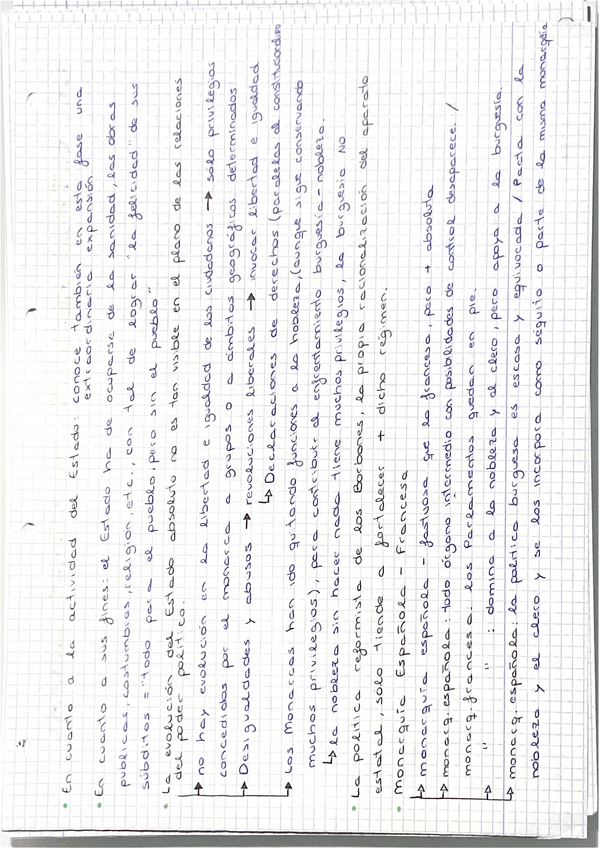 • En cuanto a la actividad del Estado: conoce también en esta fase una
extraordinaria expansión
• En cuanto a sus fines: el Estado ha de ocuparse de la sanidad, las obras
públicas, costumbres, religión, etc., con tal de lograr "la felicidad" de sus
súbditos = "todo para el pueblo, pero sin el pueblo"
• La evolución del Estado absoluto no es tan visible en el plano de las relaciones
del poder político.
→ no hay evolución en la libertad e igualdad de los ciudadanos → sólo privilegios
concedidos por el monarca a grupos o a ámbitos geográficos determinados
→ Desigualdades y abusos → revoluciones liberales → invocar libertad e igualdad
↳ Declaraciones de derechos (paralelas al constitucionalismo
→ Los Monarcas han ido quitando funciones a la nobleza, (aunque sigue conservando
muchos privilegios), para contribuir al enfrentamiento burguesía - nobleza.
↳ la nobleza sin hacer nada tiene muchos privilegios, la burguesía NO
• La política reformista de los Borbones, la propia racionalización del aparato
estatal, sólo tiende a fortalecer + dicho régimen.
• Monarquía Española - Francesa
→ monarquía española - fastuosa que la francesa, pero + absoluta
→ monarq. española: todo órgano intermedio con posibilidades de control desaparece. /
monarq. francesa: los Parlamentos quedan en pie.
→ " " : domina a la nobleza y al clero, pero apoya a la burguesía.
→ monarq. española: la política burguesa es escasa y equivocada / Pacta con la
nobleza y el clero y se los incorpora como séquito o parte de la misma monarquía